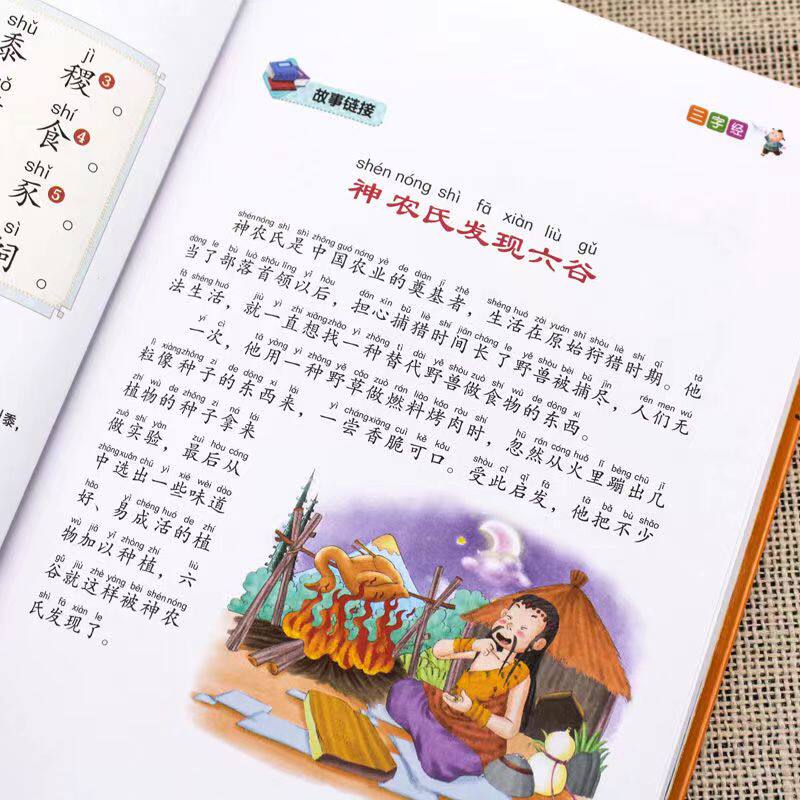 shǔ
黍
jì
稷 3
shí
食 4
shǐ
豕 5
sì
黍，
故事链接
三字经
shén nóng shì fā xiàn liù gǔ
神农氏发现六谷
shén nóng shì shì zhōng guó nóng yè de diàn jī zhě shēng huó zài yuán shǐ shòu liè shí qī tā
神农氏是中国农业的奠基者，生活在原始狩猎时期。他
dāng le bù luò shǒu lǐng yǐ hòu dān xīn bǔ liè shí jiān cháng le yě shòu bèi bǔ jìn rén men wú
当了部落首领以后，担心捕猎时间长了野兽被捕尽，人们无
fǎ shēng huó jiù yì zhí xiǎng zhǎo yì zhǒng tì dài yě shòu zuò shí wù de dōng xi
法生活，就一直想找一种替代野兽做食物的东西。
yí cì tā yòng yì zhǒng yě cǎo zuò rán liào kǎo ròu shí hū rán cóng huǒ lǐ bèng chū jǐ
一次，他用一种野草做燃料烤肉时，忽然从火里蹦出几
lì xiàng zhǒng zi de dōng xi lái yì cháng xiāng cuì kě kǒu shòu cǐ qǐ fā tā bǎ bù shǎo
粒像种子的东西来，一尝香脆可口。受此启发，他把不少
zhí wù de zhǒng zi ná lái
植物的种子拿来
zuò shí yàn zuì hòu cóng
做实验，最后从
zhōng xuǎn chū yì xiē wèi dào
中选出一些味道
hǎo yì chéng huó de zhí
好、易成活的植
wù jiā yǐ zhòng zhí liù
物加以种植，六
gǔ jiù zhè yàng bèi shén nóng
谷就这样被神农
shì fā xiàn le
氏发现了。